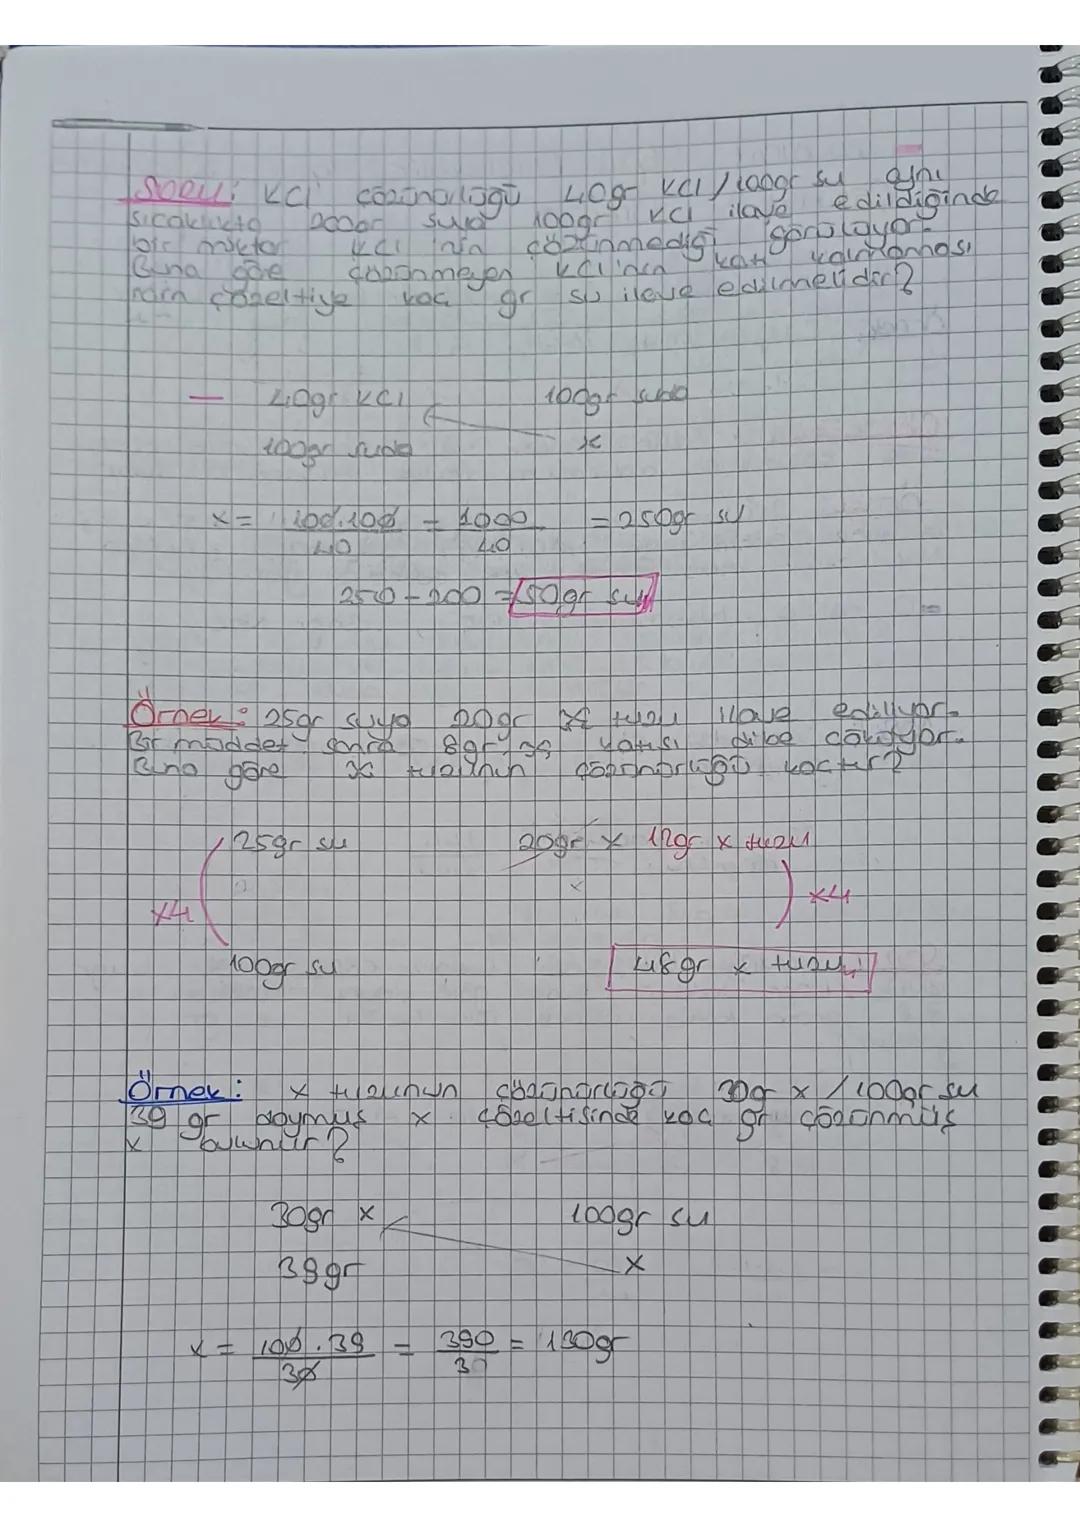 Soru: KCl çözünürlüğü 40gr KCl/100gr su aynı
sıcaklıkta 200gr suya 100gr KCl ilave edildiğinde
bir miktar KCl'nin çözünmediği görülüyor.
Buna göre çözünmeyen KCl'nin katı kalmaması
için çözeltiye kaç gr su ilave edilmelidir?
— 40gr KCl 100gr suda
100gr suda x
x = 100.100 = 1000 = 250gr su
40 40
250-200 = 50gr su
Örnek: 25gr suya 20gr X tuzu ilave ediliyor.
Bir müddet sonra 8gr katısı dibe çöküyor.
Buna göre x tuzunun çözünürlüğü kaçtır?
25gr su 20gr x 12gr x tuzu
x4 x4
100gr su 48gr x tuzu
Örnek: x tuzunun çözünürlüğü 30gr x / 100gr su
39 gr doymuş x çözeltisinde kaç gr çözünmüş
x bulunur?
30gr x 100gr su
39gr x
x = 100.39 = 390 = 130gr
30 3